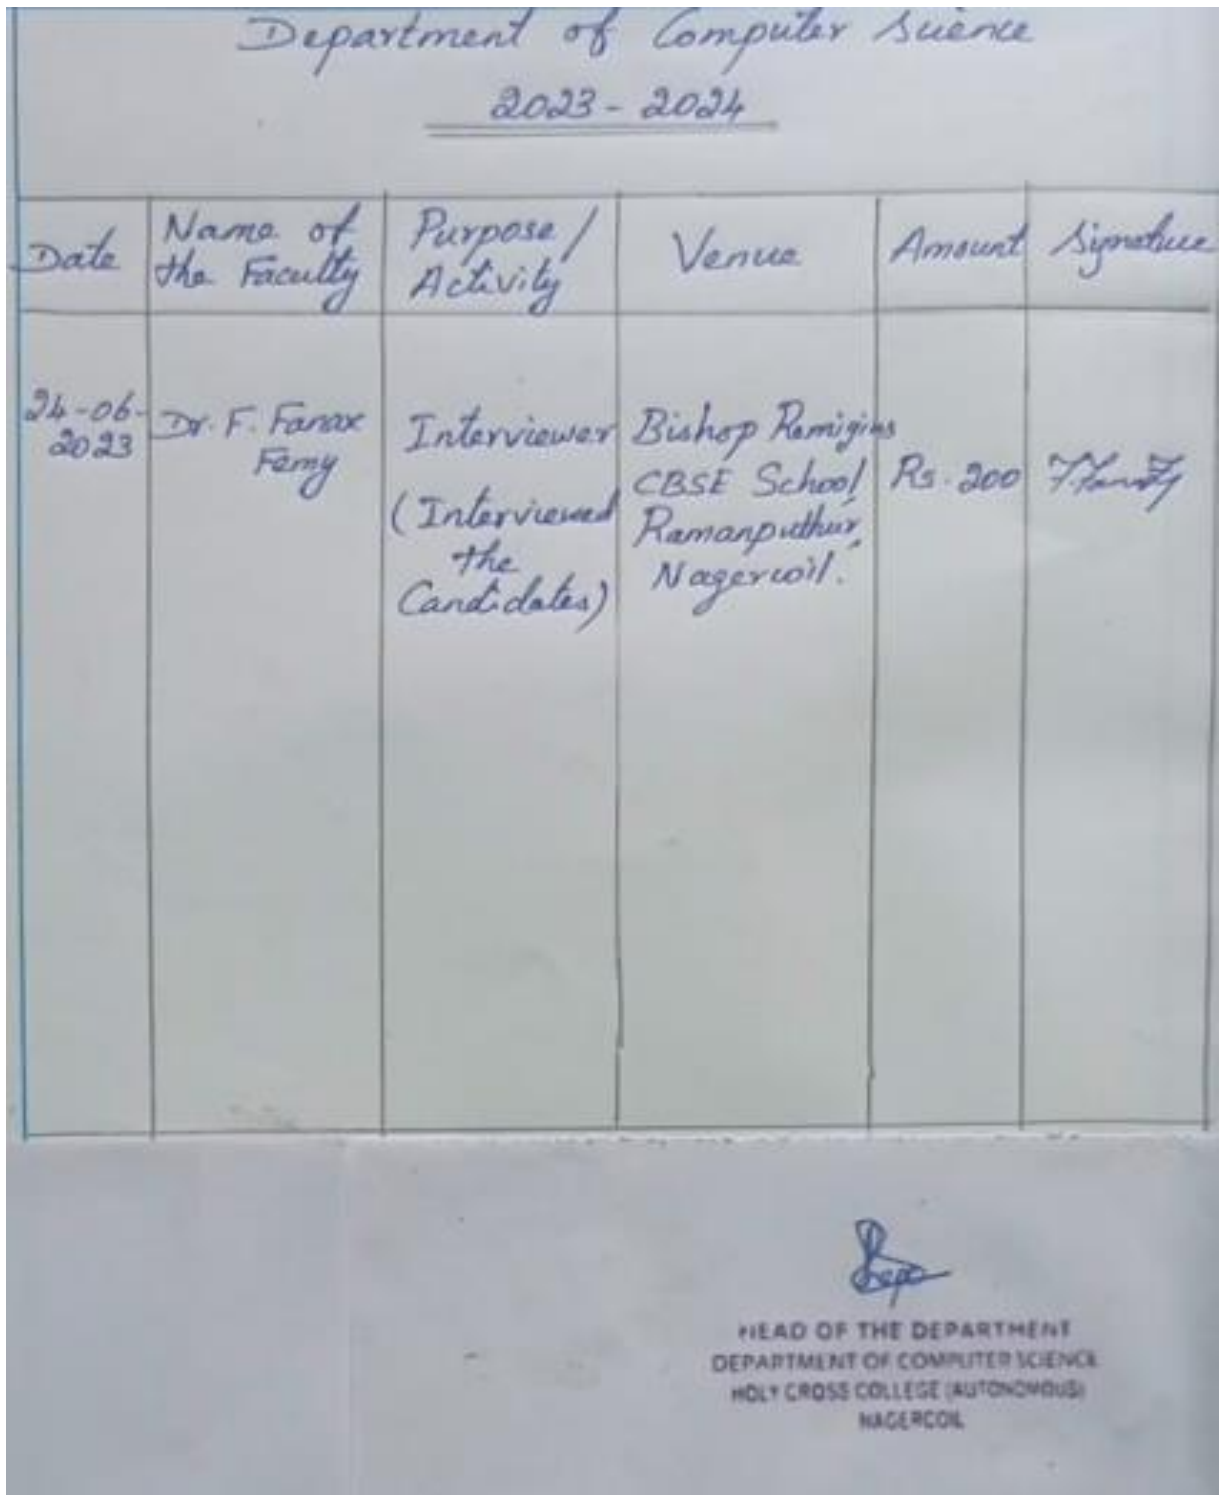 Department of Computer Science
2023 - 2024
Date
Name of
the Faculty
Purpose /
Activity
Venue
Amount
Signature
24-06-
2023
Dr. F. Fanax
Femy
Interviewer
(Interviewed
the
Candidates)
Bishop Remigius
CBSE School,
Ramanputhur,
Nagercoil.
Rs. 200
HEAD OF THE DEPARTMENT
DEPARTMENT OF COMPUTER SCIENCE
HOLY CROSS COLLEGE (AUTONOMOUS)
NAGERCOIL